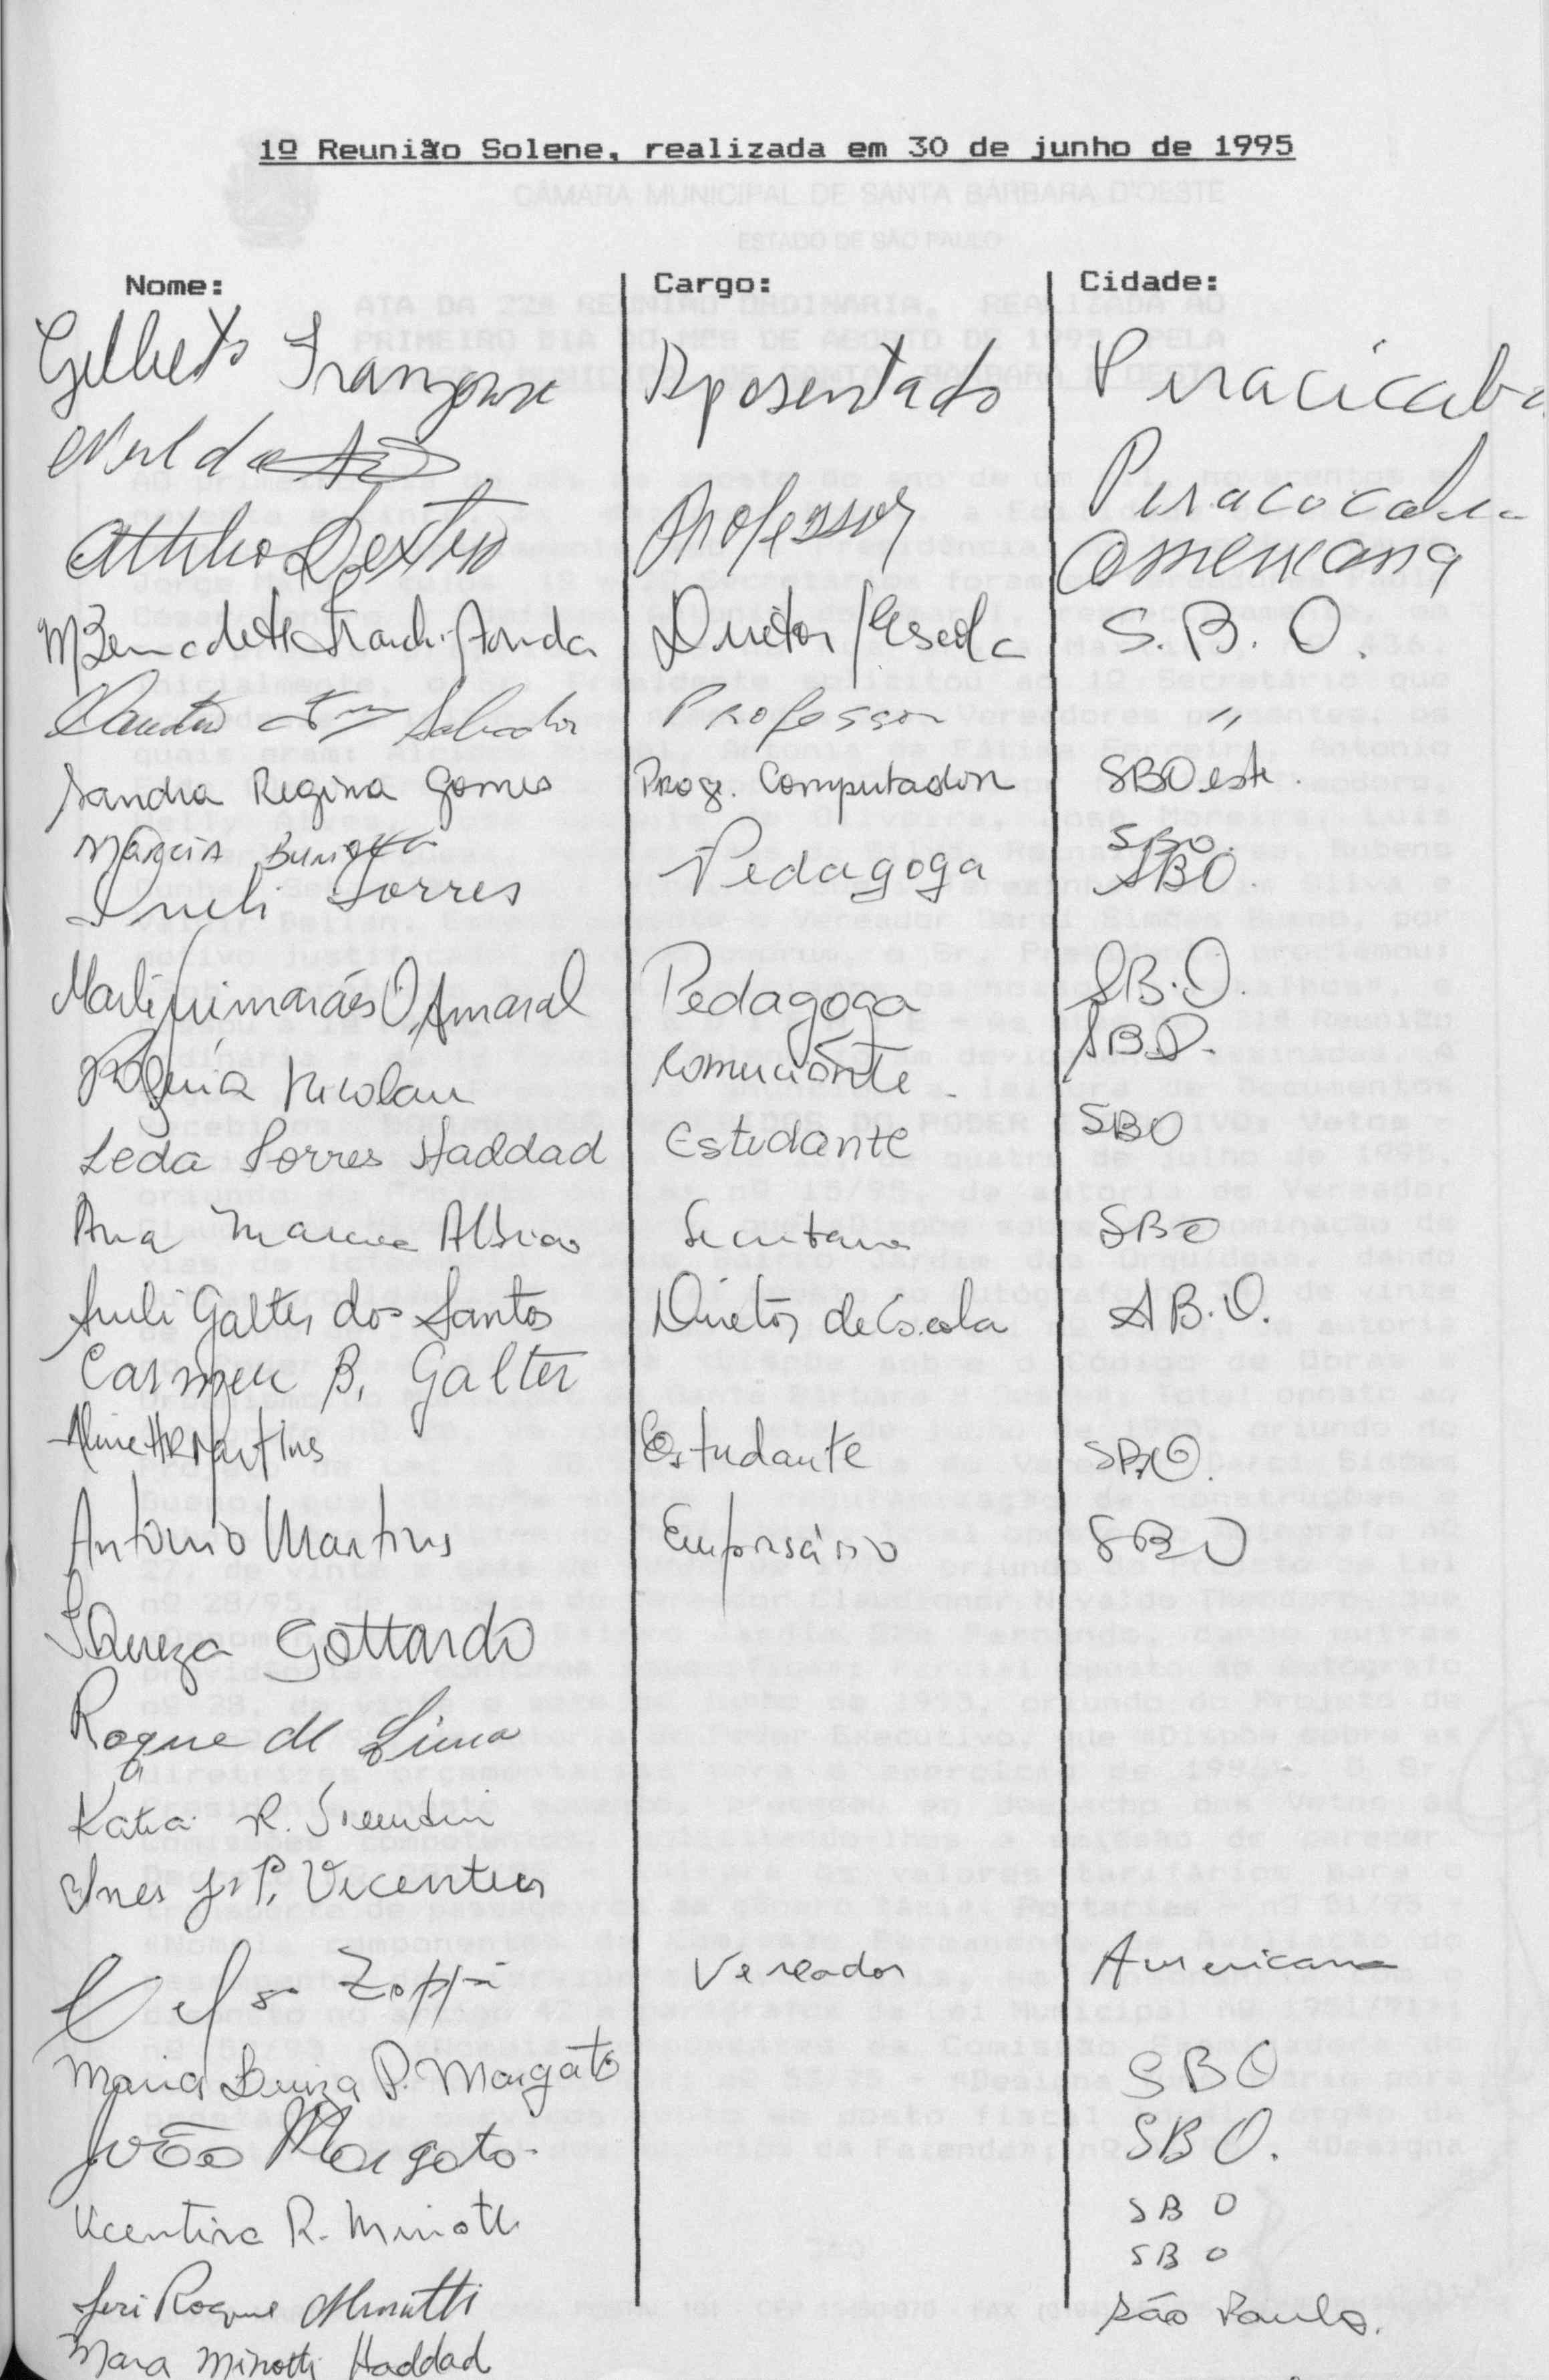 1º Reunião Solene, realizada em 30 de junho de 1995
Nome: Cargo: Cidade:
Gilberto Aposentado Piracicaba
Piracicaba
Attilio Dextro Professor Americana
M Bernadete Diretor Escola S.B.O.
Salvador Professor "
Sandra Regina Gomes Prog. Computador SBOeste.
Marcia SBO.
Sueli Torres Pedagoga SBO.
Marli Guimarães O. Amaral Pedagoga S.B.O.
Nicolau comerciante S.B.O.
Leda Torres Haddad Estudante SBO
Ana Secretaria SBO
Sueli Galter dos Santos Diretor de Escola S.B.O.
Carmen B. Galter
Aline HR Martins Estudante SBO.
Antonio Martins Empresário SBO
Tereza Gottardo
Roque de Lima
Katia R.
Ines P. Vicentini
Celso Zoppi Vereador Americana
Maria P. Margato SBO
João Margato SBO.
Vicentina R. Minotti SBO
Roque Minotti SBO
São Paulo.
Mara Minotti Haddad